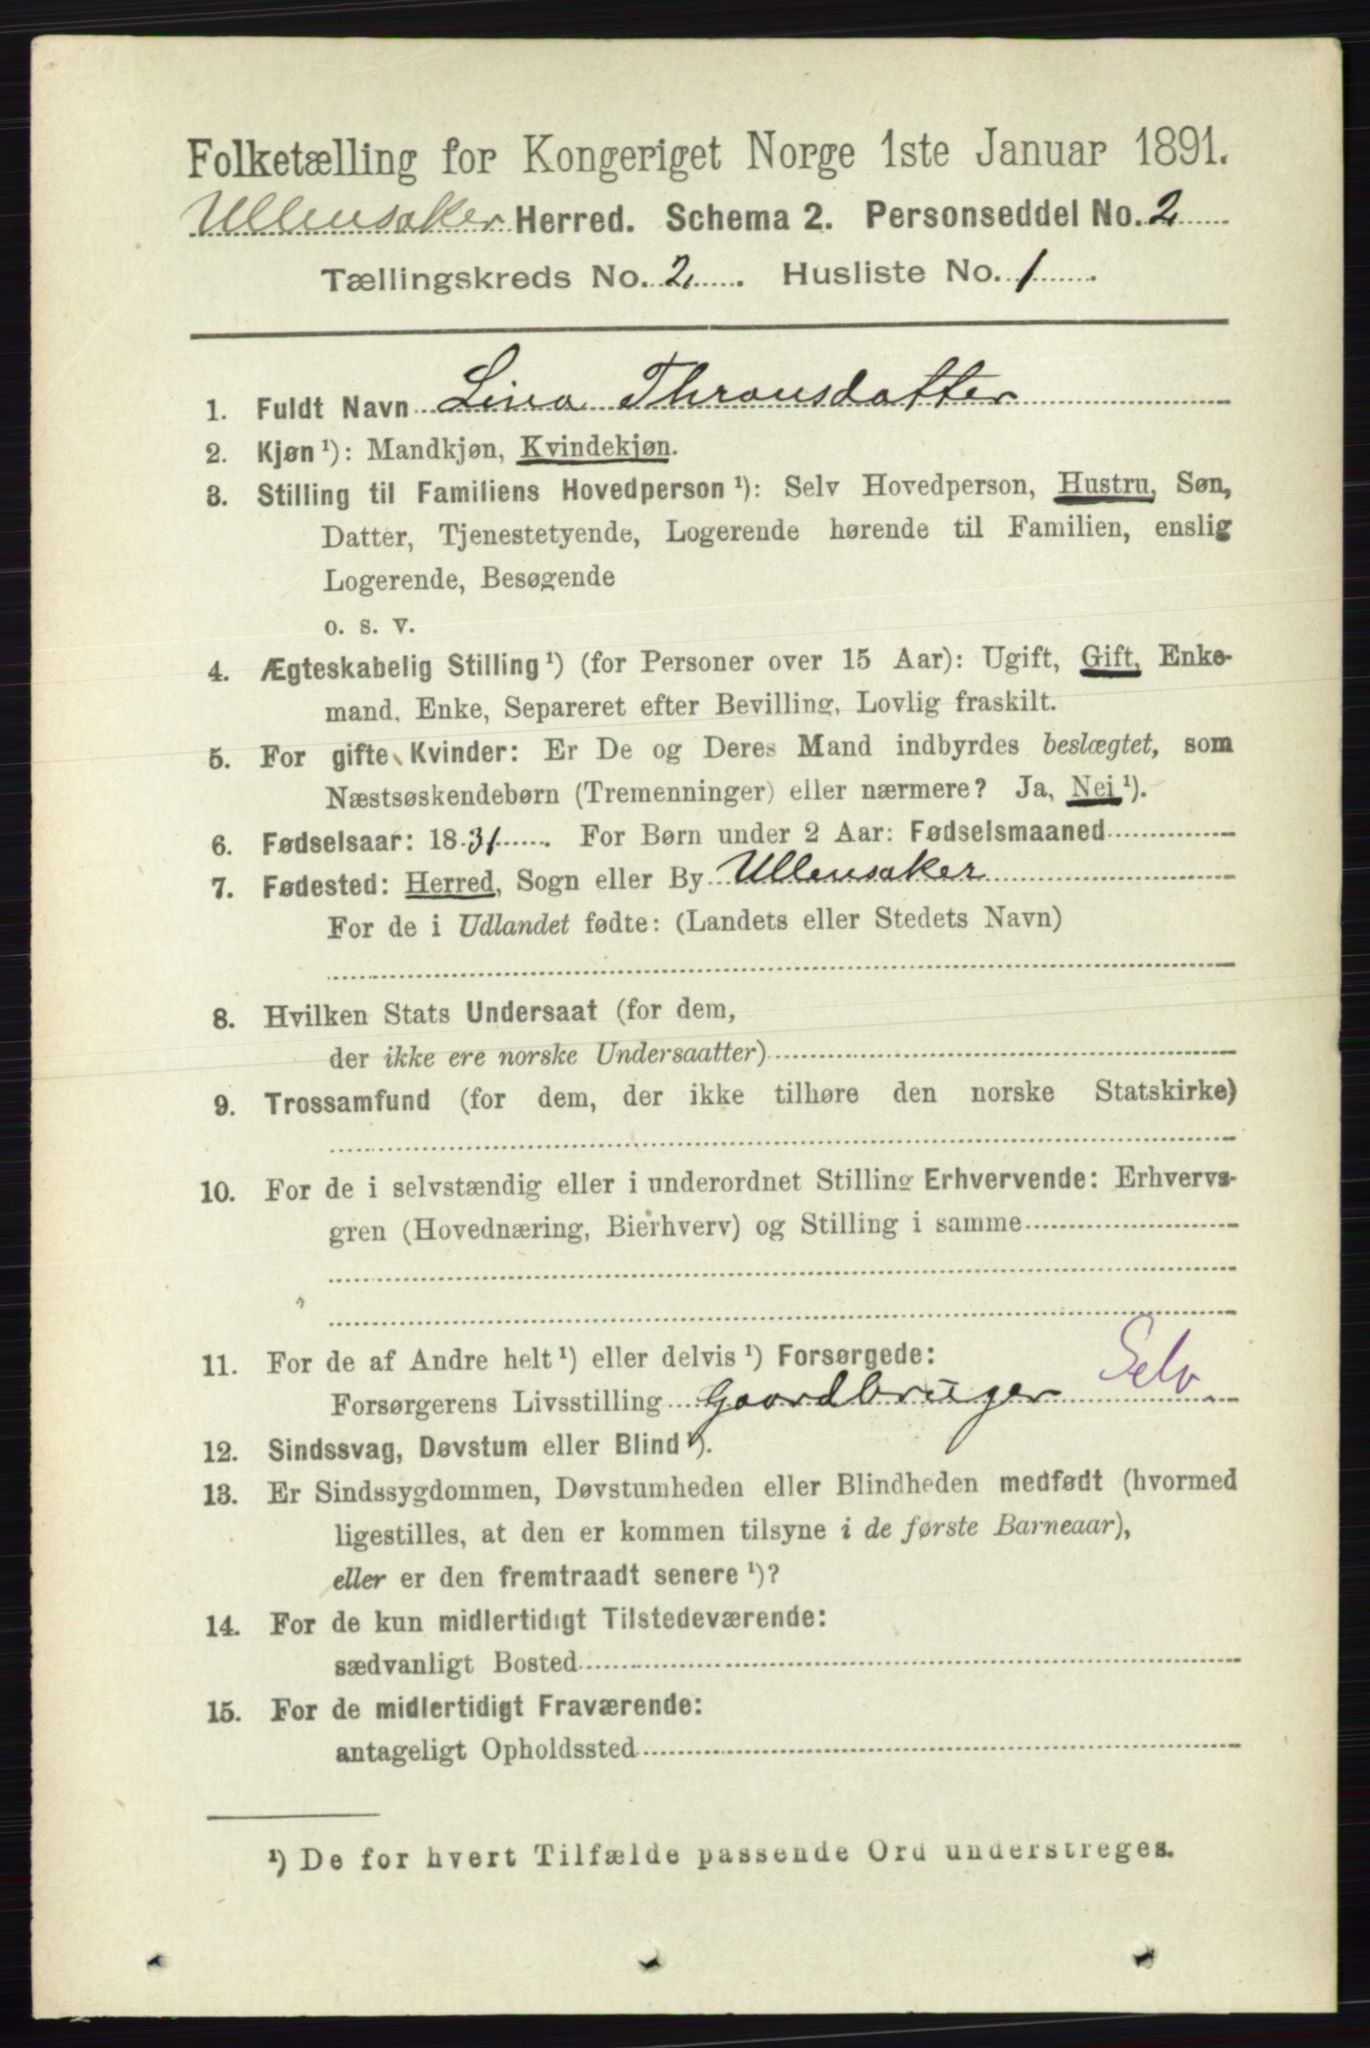 Folketælling for Kongeriget Norge 1ste Januar 1891.
Ullensaker Herred. Schema 2. Personseddel No. 2
Tællingskreds No. 2 . Husliste No. 1 .
1. Fuldt Navn Lina Thronsdatter
2. Kjøn ¹): Mandkjøn, Kvindekjøn.
3. Stilling til Familiens Hovedperson ¹): Selv Hovedperson, Hustru, Søn,
Datter, Tjenestetyende, Logerende hørende til Familien, enslig
Logerende, Besøgende
o. s. v.
4. Ægteskabelig Stilling ¹) (for Personer over 15 Aar): Ugift, Gift, Enke-
mand, Enke, Separeret efter Bevilling, Lovlig fraskilt.
5. For gifte Kvinder: Er De og Deres Mand indbyrdes beslægtet, som
Næstsøskendebørn (Tremenninger) eller nærmere? Ja, Nei ¹).
6. Fødselsaar: 18 31 . For Børn under 2 Aar: Fødselsmaaned
7. Fødested: Herred, Sogn eller By Ullensaker
For de i Udlandet fødte: (Landets eller Stedets Navn)
8. Hvilken Stats Undersaat (for dem,
der ikke ere norske Undersaatter)
9. Trossamfund (for dem, der ikke tilhøre den norske Statskirke)
10. For de i selvstændig eller i underordnet Stilling Erhvervende: Erhvervs-
gren (Hovednæring, Bierhverv) og Stilling i samme
11. For de af Andre helt ¹) eller delvis ¹) Forsørgede:
Forsørgerens Livsstilling Gaardbruger Selv
12. Sindssvag, Døvstum eller Blind ¹).
13. Er Sindssygdommen, Døvstumheden eller Blindheden medfødt (hvormed
ligestilles, at den er kommen tilsyne i de første Barneaar),
eller er den fremtraadt senere ¹)?
14. For de kun midlertidigt Tilstedeværende:
sædvanligt Bosted
15. For de midlertidigt Fraværende:
antageligt Opholdssted
¹) De for hvert Tilfælde passende Ord understreges.